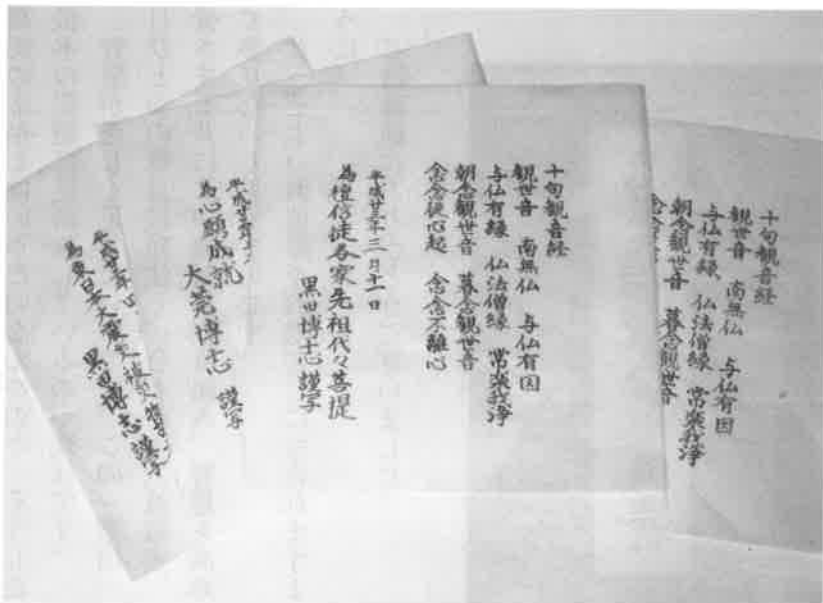 十句観音経
観世音 南無仏 与仏有因
与仏有縁 仏法僧縁 常楽我浄
朝念観世音 暮念観世音
念念
十句観音経
観世音 南無仏 与仏有因
与仏有縁 仏法僧縁 常楽我浄
朝念観世音 暮念観世音
念念従心起 念念不離心
平成廿三年三月十一日
為檀信徒各家先祖代々菩提
黒田博志 謹写
平成廿三年
為心願成就
博志 謹写
平成廿三年
為東日本大震災被災
黒田博志 謹写